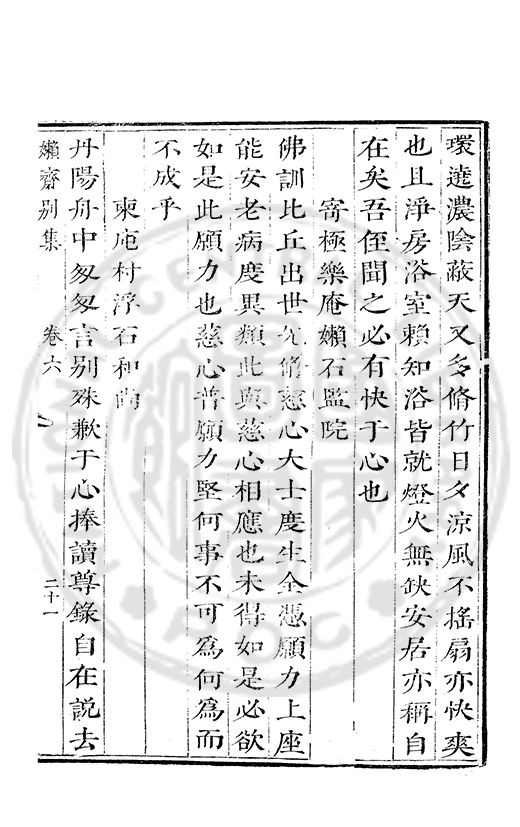 環遶濃陰蔽天又多脩竹日夕涼風不搖扇亦快爽
也且淨房浴室賴知浴皆就燈火無缺安居亦稱自
在矣吾侄聞之必有快于心也
寄極樂庵嬾石監院
佛訓比丘出世先脩慈心大士度生全憑願力上座
能安老病度異類此與慈心相應也未得如是必欲
如是此願力也慈心普願力堅何事不可為何為而
不成乎
柬庵村浮石和尚
丹陽舟中匆匆言別殊歉于心捧讀尊錄自在說去
嬾齋別集 卷六 二十一